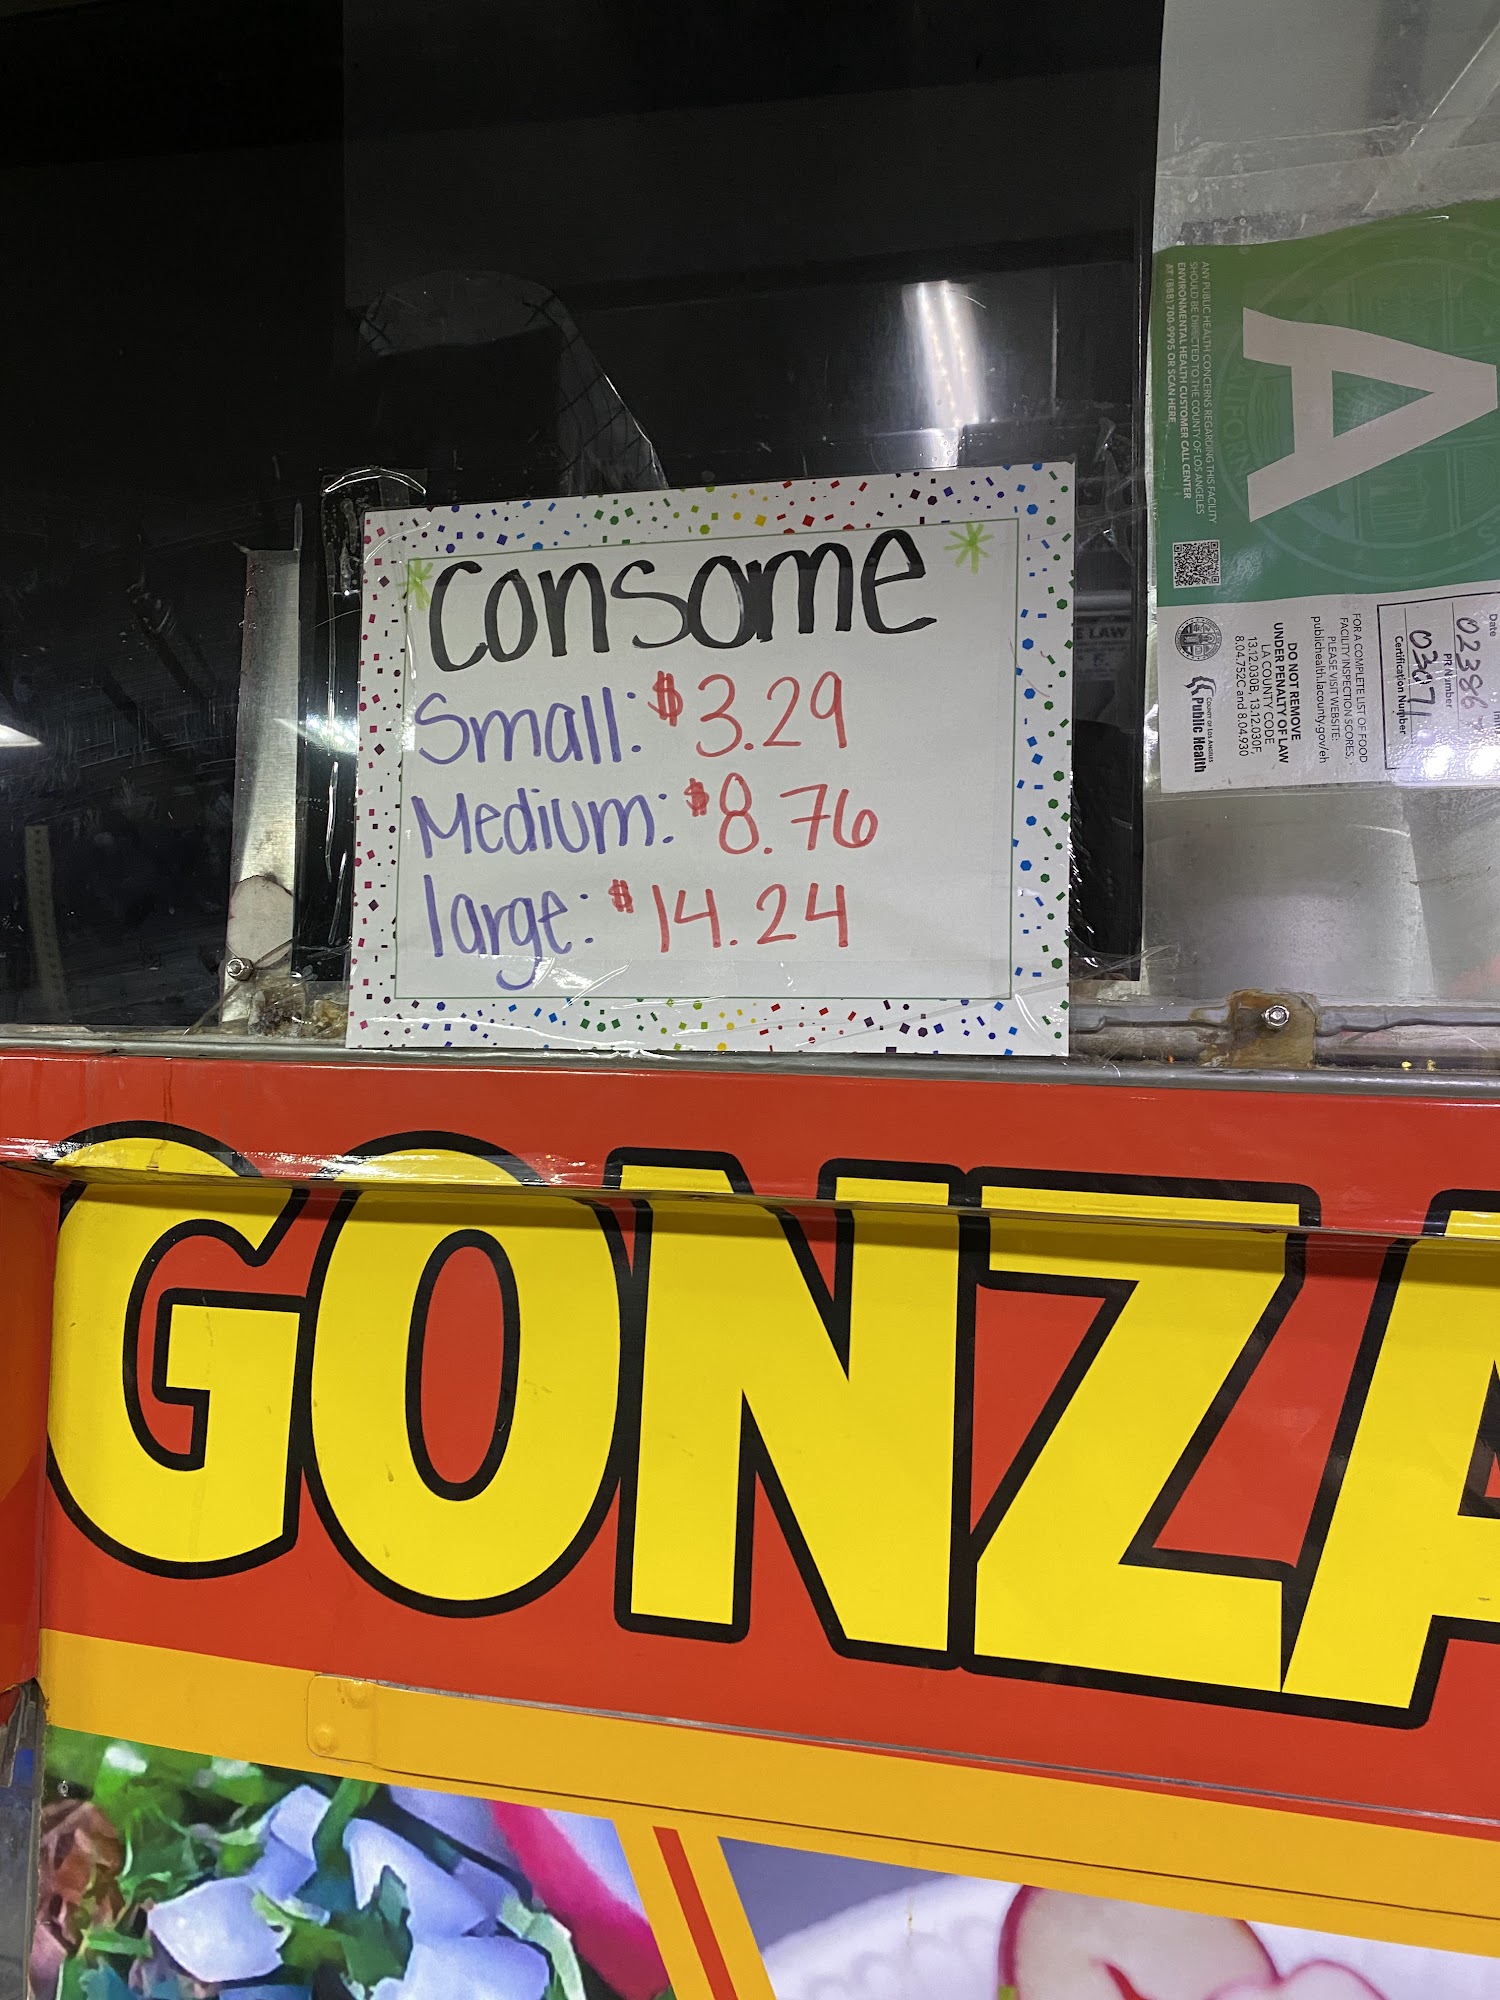 Consome
Small: $3.29
Medium: $8.76
large: $14.24
GONZA
A
ANY PUBLIC HEALTH CONCERNS REGARDING THIS FACILITY
SHOULD BE DIRECTED TO THE COUNTY OF LOS ANGELES
ENVIRONMENTAL HEALTH CUSTOMER CALL CENTER
AT (888) 700-9995 OR SCAN HERE
Date
02386
PR Number
0307
Certification Number
FOR A COMPLETE LIST OF FOOD
FACILITY INSPECTION SCORES,
PLEASE VISIT WEBSITE:
publichealth.lacounty.gov/eh
DO NOT REMOVE
UNDER PENALTY OF LAW
LA COUNTY CODE
13.12.030B, 13.12.030F,
8.04.752C and 8.04.930
COUNTY OF LOS ANGELES
Public Health
E LAW